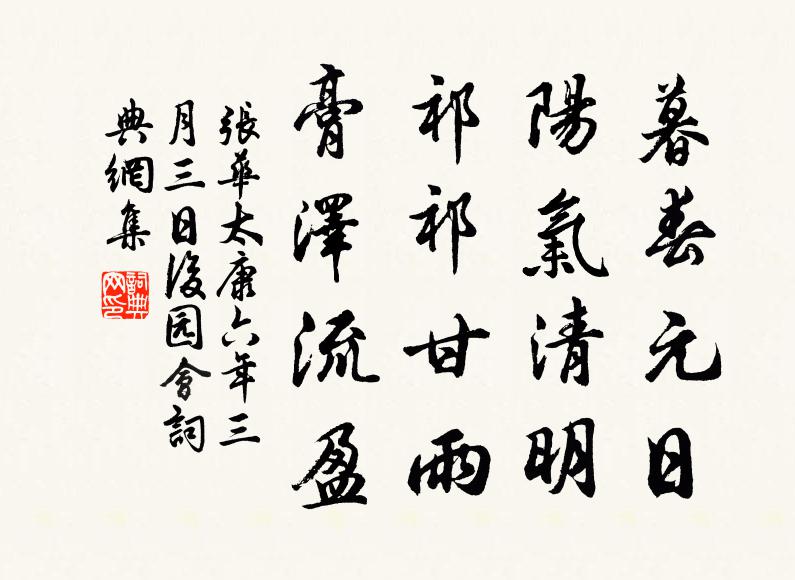 暮春元日
陽氣清明
祁祁甘雨
膏澤流盈
張華太康六年三
月三日後园會詞
典網集
詞典
网印